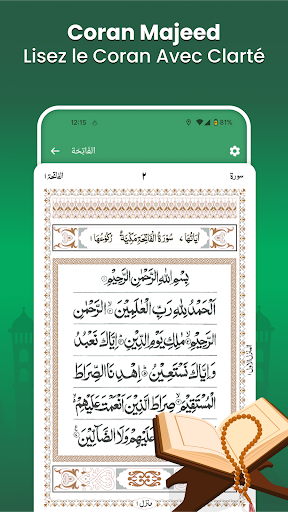 Coran Majeed
Lisez le Coran Avec Clarté
12:15 81%
الفَاتِحَة
سورة ٢ الفاتحة ١
اٰيَاتُهَا ٧ سُوْرَةُ الْفَاتِحَةِ مَكِّيَّةٌ رُكُوْعُهَا ١
بِسْمِ اللّٰهِ الرَّحْمٰنِ الرَّحِيْمِ
اَلْحَمْدُ لِلّٰهِ رَبِّ الْعٰلَمِيْنَ ۙ الرَّحْمٰنِ
الرَّحِيْمِ ۙ مٰلِكِ يَوْمِ الدِّيْنِ ؕ اِيَّاكَ نَعْبُدُ
وَ اِيَّاكَ نَسْتَعِيْنُ ؕ اِهْدِنَا الصِّرَاطَ
الْمُسْتَقِيْمَ ۙ صِرَاطَ الَّذِيْنَ اَنْعَمْتَ عَلَيْهِمْ ۙ
غَيْرِ الْمَغْضُوْبِ عَلَيْهِمْ وَلَا الضَّآلِّيْنَ
منزل ١